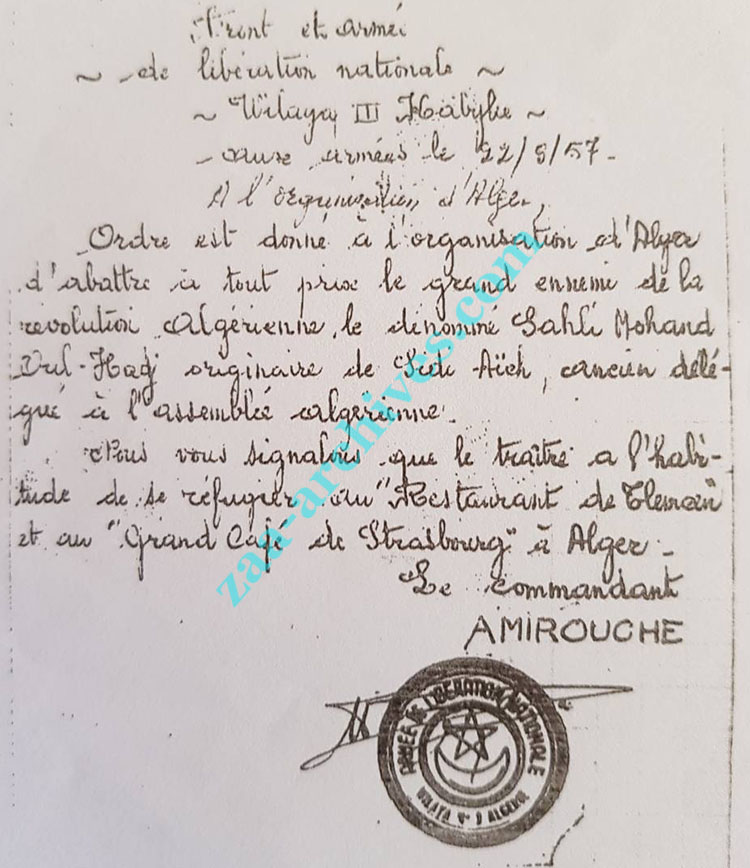 Front et armée
~ de libération nationale ~
~ Wilaya III Kabylie ~
aux armées le 22/8/57.
A l'organisation d'Alger,
Ordre est donné à l'organisation d'Alger
d'abattre à tout prix le grand ennemi de la
révolution Algérienne, le dénommé Sahli Mohand
Oul-Hadj originaire de Sidi-Aïch, ancien délé-
gué à l'assemblée algérienne.
Nous vous signalons que le traître a l'habi-
tude de se réfugier au "Restaurant de Tlemcen"
et au "Grand Café de Strasbourg" à Alger.
Le commandant
AMIROUCHE
ARMÉE DE LIBÉRATION NATIONALE
WILAYA N° ALGERIE
zaa-archives.com